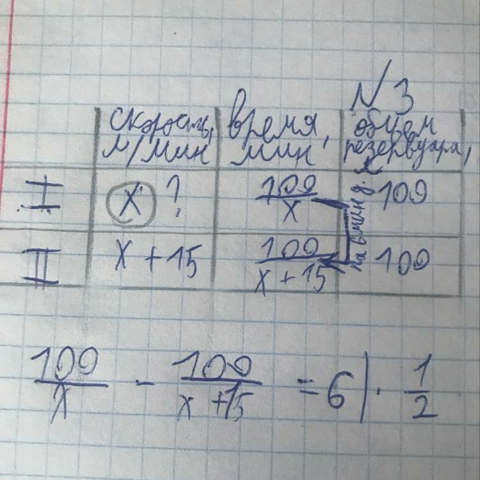 №3
скорость, л/мин | время, мин | объем резервуара, л
I | x ? | 100/x | 100
на 6 мин
II | x + 15 | 100/(x + 15) | 100
100/x - 100/(x + 15) = 6 | · 1/2